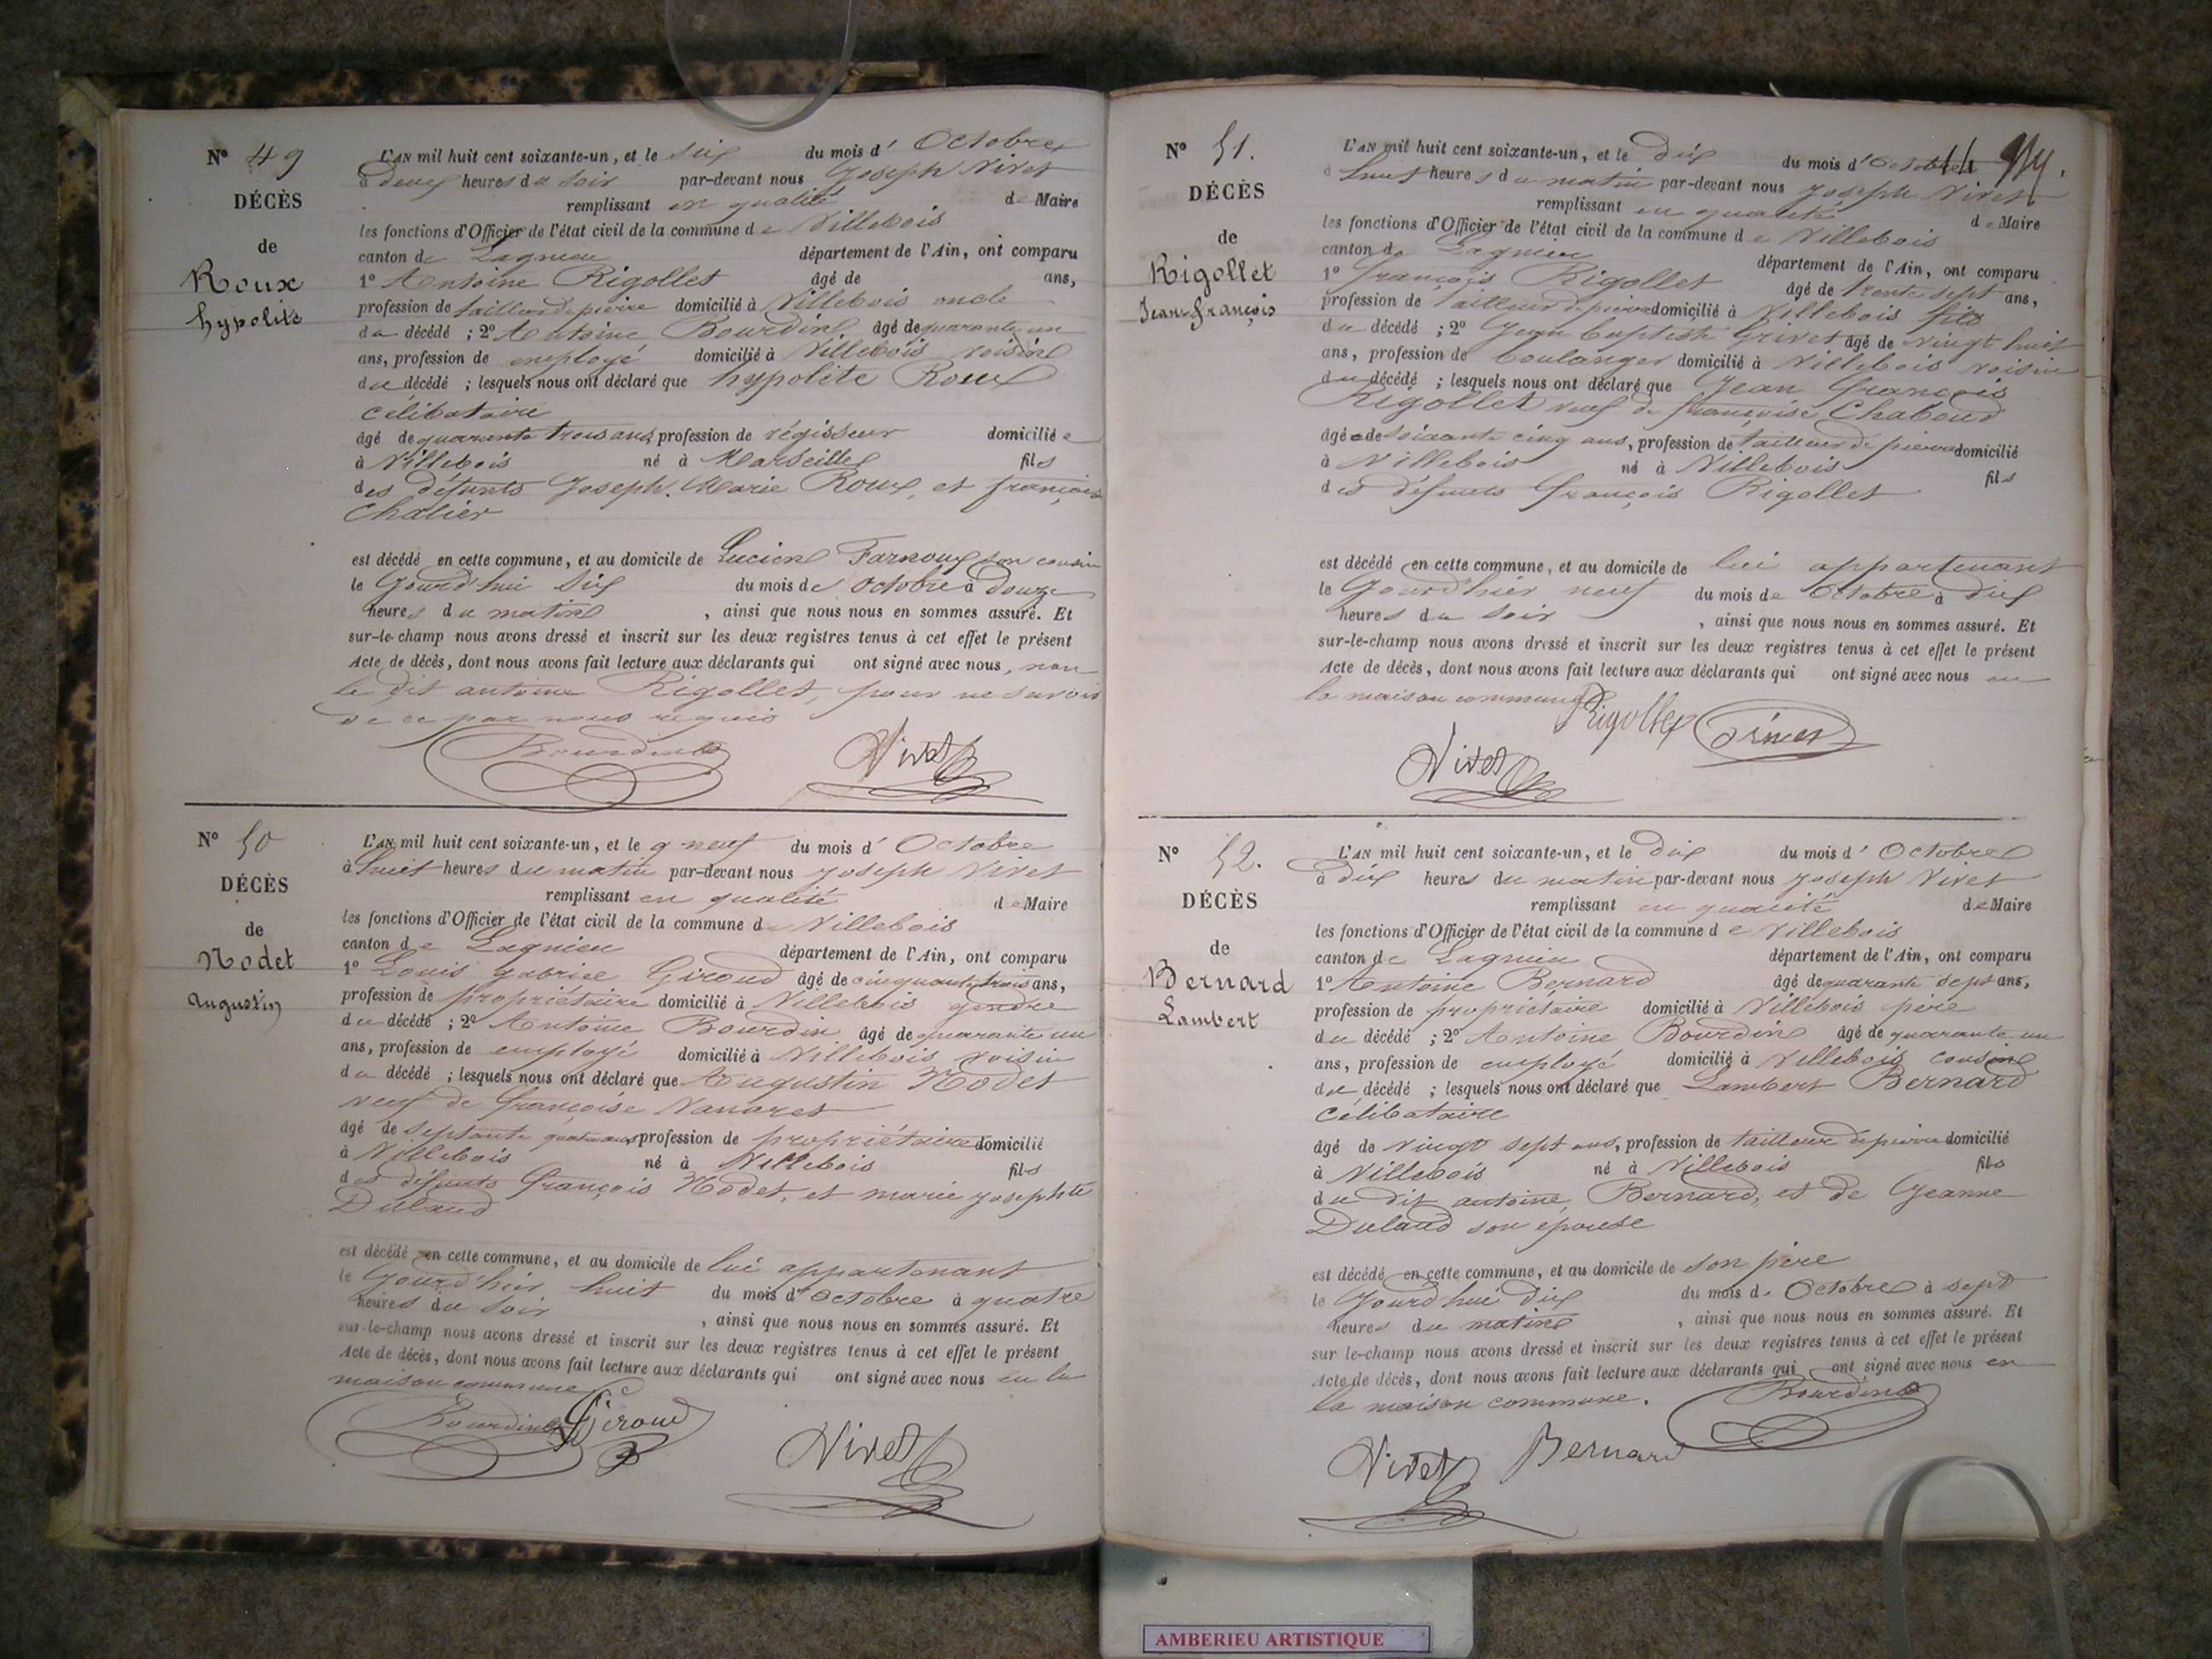 N° 49
DÉCÈS
de
Roux
hypolite
L'AN mil huit cent soixante-un, et le six du mois d' Octobre
à deux heures du soir par-devant nous Joseph Vivet
remplissant en qualité de Maire
les fonctions d'Officier de l'état civil de la commune de Villebois
canton de Lagnieu département de l'Ain, ont comparu
1° Antoine Rigollet âgé de ans,
profession de tailleur de pierre domicilié à Villebois oncle
du décédé ; 2° Antoine Bourdin âgé de quarante un
ans, profession de employé domicilié à Villebois voisin
du décédé ; lesquels nous ont déclaré que hypolite Roux
célibataire
âgé de quarante trois ans, profession de régisseur domicilié
à Villebois né à Marseille fils
des défunts Joseph. Marie Roux, et françoise
Chalier
est décédé en cette commune, et au domicile de Lucien Farnoux son cousin
le Jourd'hui Six du mois de Octobre à douze
heures du matin , ainsi que nous nous en sommes assuré. Et
sur-le-champ nous avons dressé et inscrit sur les deux registres tenus à cet effet le présent
Acte de décès, dont nous avons fait lecture aux déclarants qui ont signé avec nous, non
le dit antoine Rigollet, pour ne savoir
de ce par nous requis
Bourdin Vivet
N° 50
DÉCÈS
de
Nodet
augustin
L'AN mil huit cent soixante-un, et le 9 neuf du mois d' Octobre
à huit heures du matin par-devant nous Joseph Vivet
remplissant en qualité de Maire
les fonctions d'Officier de l'état civil de la commune de Villebois
canton de Lagnieu département de l'Ain, ont comparu
1° Louis gabriel Giroud âgé de cinquante trois ans,
profession de propriétaire domicilié à Villebois gendre
du décédé ; 2° Antoine Bourdin âgé de quarante un
ans, profession de employé domicilié à Villebois voisin
du décédé ; lesquels nous ont déclaré que Augustin Nodet
veuf de françoise Vanaret
âgé de septante quatre ans, profession de propriétaire domicilié
à Villebois né à Villebois fils
des défunts françois Nodet, et marie josephte
Dulaud
est décédé en cette commune, et au domicile de lui appartenant
le Jourd'hier huit du mois d' Octobre à quatre
heures du soir , ainsi que nous nous en sommes assuré. Et
sur-le-champ nous avons dressé et inscrit sur les deux registres tenus à cet effet le présent
Acte de décès, dont nous avons fait lecture aux déclarants qui ont signé avec nous en la
maison commune
Bourdin Giroud
Vivet
N° 51.
DÉCÈS
de
Rigollet
Jean-françois
L'AN mil huit cent soixante-un, et le dix du mois d' Octobre
à huit heures du matin par-devant nous Joseph Vivet
remplissant en qualité de Maire
les fonctions d'Officier de l'état civil de la commune de Villebois
canton de Lagnieu département de l'Ain, ont comparu
1° françois Rigollet âgé de trente sept ans,
profession de tailleur de pierre domicilié à Villebois fils
du décédé ; 2° Jean baptiste Grivet âgé de vingt huit
ans, profession de boulanger domicilié à Villebois voisin
du décédé ; lesquels nous ont déclaré que Jean françois
Rigollet veuf de françoise Chaboud
âgé de soixante cinq ans, profession de tailleur de pierre domicilié
à Villebois né à Villebois fils
des défunts françois Rigollet
est décédé en cette commune, et au domicile de lui appartenant
le Jourd'hier neuf du mois de Octobre à dix
heures du soir , ainsi que nous nous en sommes assuré. Et
sur-le-champ nous avons dressé et inscrit sur les deux registres tenus à cet effet le présent
Acte de décès, dont nous avons fait lecture aux déclarants qui ont signé avec nous en
la maison commune
Rigollet Grivet
Vivet
N° 52.
DÉCÈS
de
Bernard
Lambert
L'AN mil huit cent soixante-un, et le dix du mois d' Octobre
à dix heures du matin par-devant nous Joseph Vivet
remplissant en qualité de Maire
les fonctions d'Officier de l'état civil de la commune de Villebois
canton de Lagnieu département de l'Ain, ont comparu
1° Antoine Bernard âgé de quarante sept ans,
profession de propriétaire domicilié à Villebois père
du décédé ; 2° Antoine Bourdin âgé de quarante un
ans, profession de employé domicilié à Villebois cousin
du décédé ; lesquels nous ont déclaré que Lambert Bernard
célibataire
âgé de vingt sept ans, profession de tailleur de pierre domicilié
à Villebois né à Villebois fils
du dit antoine, Bernard, et de Jeanne
Dulaud son épouse
est décédé en cette commune, et au domicile de son père
le Jourd'hui dix du mois de Octobre à sept
heures du matin , ainsi que nous nous en sommes assuré. Et
sur le-champ nous avons dressé et inscrit sur les deux registres tenus à cet effet le présent
Acte de décès, dont nous avons fait lecture aux déclarants qui ont signé avec nous en
la maison commune. Bourdin
Vivet Bernard
AMBERIEU ARTISTIQUE